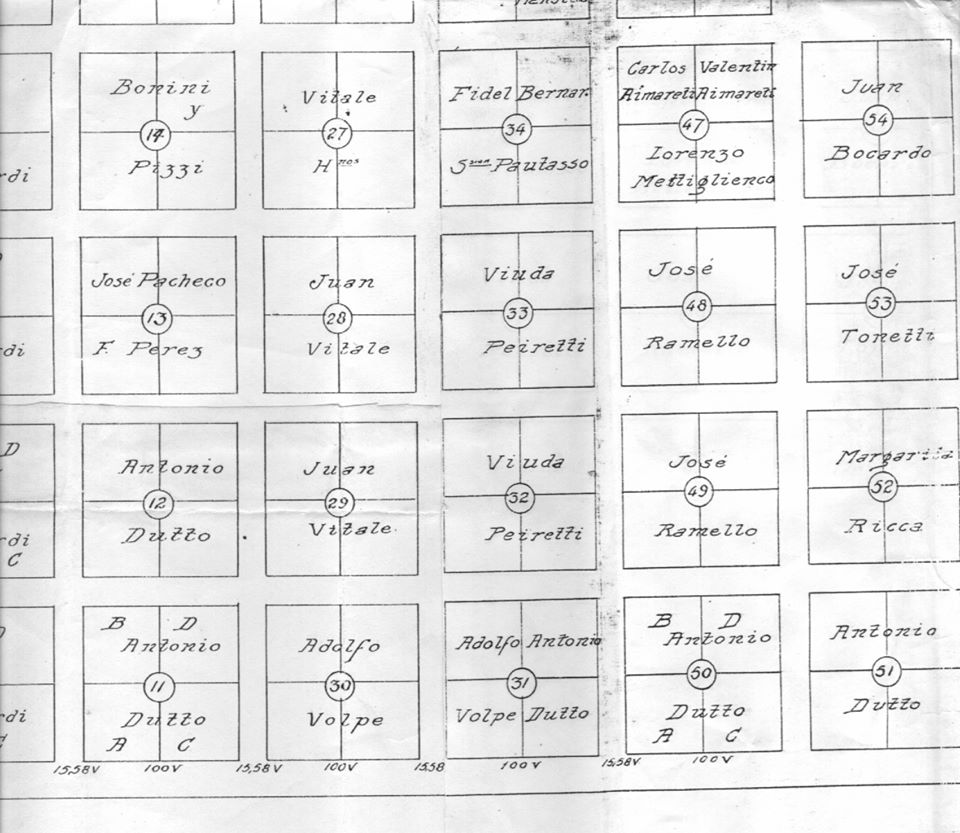 Bonini
y
14
Pizzi
Vitale
27
Hnos
Fidel Bernar
34
Sucn Pautasso
Carlos Valentin
Aimareti Aimareti
47
Lorenzo
Mettiglienco
Juan
54
Bocardo
rdi
José Pacheco
13
F. Perez
Juan
28
Vitale
Viuda
33
Peiretti
José
48
Ramello
José
53
Tonetti
di
D
Antonio
12
Dutto
Juan
29
Vitale
Viuda
32
Peiretti
José
49
Ramello
Margarita
52
Ricca
rdi
C
B D
Antonio
11
Dutto
A C
Adolfo
30
Volpe
Adolfo Antonio
31
Volpe Dutto
B D
Antonio
50
Dutto
A C
Antonio
51
Dutto
rdi
15,58V 100V 15,58V 100V 15,58 100V 15,58V 100V